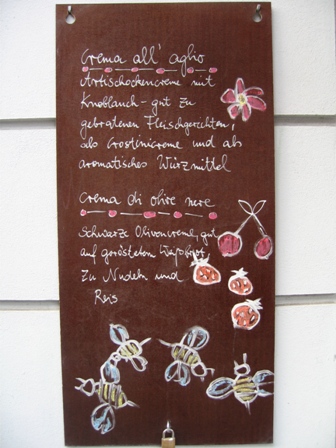 Crema all' aglio
Artischockencreme mit
Knoblauch - gut zu
gebratenen Fleischgerichten,
als Crostinicreme und als
aromatisches Würzmittel
Crema di olive nere
Schwarze Olivencreme, gut
auf geröstetem
Zu Nudeln und
Reis